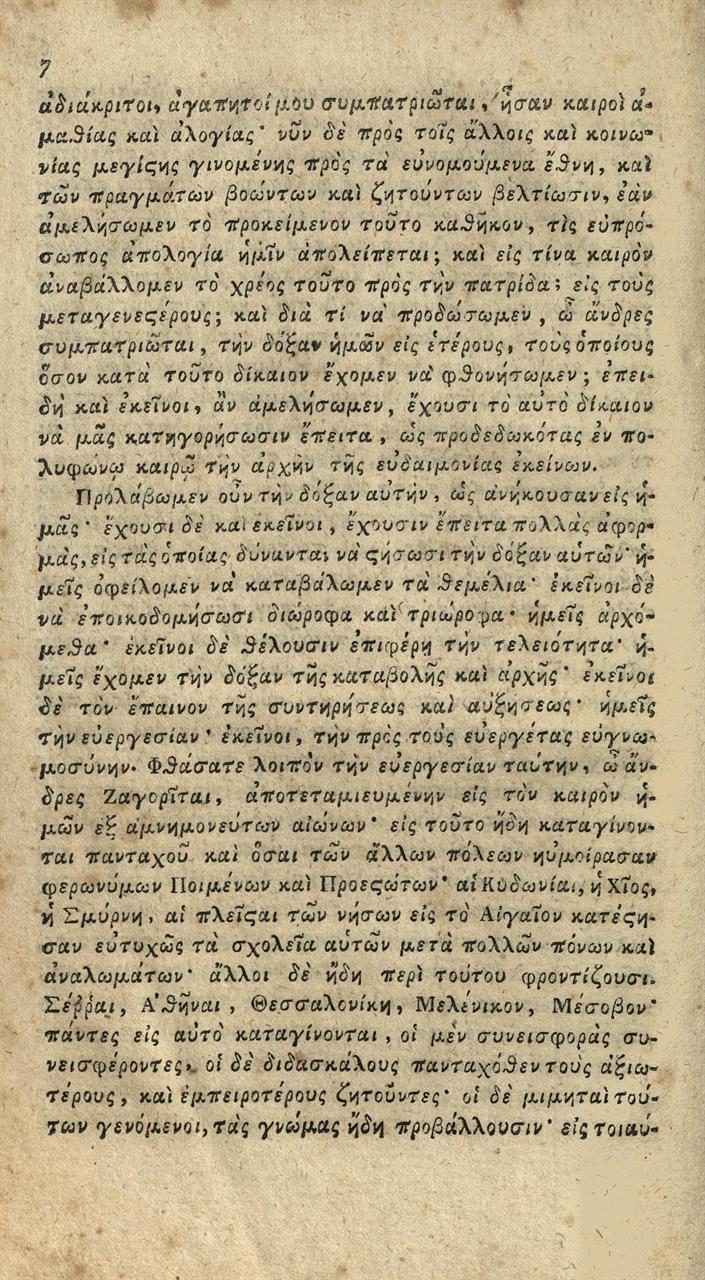 7
ἀδιάκριτοι, ἀγαπητοί μου συμπατριῶται, ἦσαν καιροὶ ἀ-
μαθίας καὶ ἀλογίας· νῦν δὲ πρὸς τοῖς ἄλλοις καὶ κοινω-
νίας μεγίϛης γινομένης πρὸς τὰ εὐνομούμενα ἔθνη, καὶ
τῶν πραγμάτων βοώντων καὶ ζητούντων βελτίωσιν, ἐὰν
ἀμελήσωμεν τὸ προκείμενον τοῦτο καθῆκον, τὶς εὐπρό-
σωπος ἀπολογία ἡμῖν ἀπολείπεται; καὶ εἰς τίνα καιρὸν
ἀναβάλλομεν τὸ χρέος τοῦτο πρὸς τὴν πατρίδα; εἰς τοὺς
μεταγενεϛέρους; καὶ διὰ τί νὰ προδώσωμεν, ὦ ἄνδρες
συμπατριῶται, τὴν δόξαν ἡμῶν εἰς ἑτέρους, τοὺς ὁποίους
ὅσον κατὰ τοῦτο δίκαιον ἔχομεν νὰ φθονήσωμεν; ἐπει-
δὴ καὶ ἐκεῖνοι, ἂν ἀμελήσωμεν, ἔχουσι τὸ αὐτὸ δίκαιον
νὰ μᾶς κατηγορήσωσιν ἔπειτα, ὡς προδεδωκότας ἐν πο-
λυφώνῳ καιρῷ τὴν ἀρχὴν τῆς εὐδαιμονίας ἐκείνων.
Προλάβωμεν οὖν τὴν δόξαν αὐτὴν, ὡς ἀνήκουσαν εἰς ἡ-
μᾶς· ἔχουσι δὲ καὶ ἐκεῖνοι, ἔχουσιν ἔπειτα πολλὰς ἀφορ-
μὰς, εἰς τὰς ὁποίας δύνανται νὰ ϛήσωσι τὴν δόξαν αὑτῶν· ἡ-
μεῖς ὀφείλομεν νὰ καταβάλωμεν τὰ θεμέλια· ἐκεῖνοι δὲ
νὰ ἐποικοδομήσωσι διώροφα καὶ τριώροφα· ἡμεῖς ἀρχό-
μεθα· ἐκεῖνοι δὲ θέλουσιν ἐπιφέρη τὴν τελειότητα· ἡ-
μεῖς ἔχομεν τὴν δόξαν τῆς καταβολῆς καὶ ἀρχῆς· ἐκεῖνοι
δὲ τὸν ἔπαινον τῆς συντηρήσεως καὶ αὐξήσεως· ἡμεῖς
τὴν εὐεργεσίαν· ἐκεῖνοι, τὴν πρὸς τοὺς εὐεργέτας εὐγνω-
μοσύνην. Φθάσατε λοιπὸν τὴν εὐεργεσίαν ταύτην, ὦ ἄν-
δρες Ζαγορῖται, ἀποτεταμιευμένην εἰς τὸν καιρὸν ἡ-
μῶν ἐξ ἀμνημονεύτων αἰώνων· εἰς τοῦτο ἤδη καταγίνον-
ται πανταχοῦ καὶ ὅσαι τῶν ἄλλων πόλεων ηὐμοίρασαν
φερωνύμων Ποιμένων καὶ Προεϛώτων· αἱ Κυδωνίαι, ἡ Χῖος,
ἡ Σμύρνη, αἱ πλεῖϛαι τῶν νήσων εἰς τὸ Αἰγαῖον κατέϛη-
σαν εὐτυχῶς τὰ σχολεῖα αὑτῶν μετὰ πολλῶν πόνων καὶ
ἀναλωμάτων· ἄλλοι δὲ ἤδη περὶ τούτου φροντίζουσι.
Σέῤῥαι, Ἀθῆναι, Θεσσαλονίκη, Μελένικον, Μέσοβον·
πάντες εἰς αὐτὸ καταγίνονται, οἱ μὲν συνεισφορὰς συ-
νεισφέροντες, οἱ δὲ διδασκάλους πανταχόθεν τοὺς ἀξιω-
τέρους, καὶ ἐμπειροτέρους ζητοῦντες· οἱ δὲ μιμηταὶ τού-
των γενόμενοι, τὰς γνώμας ἤδη προβάλλουσιν· εἰς τοιαύ-